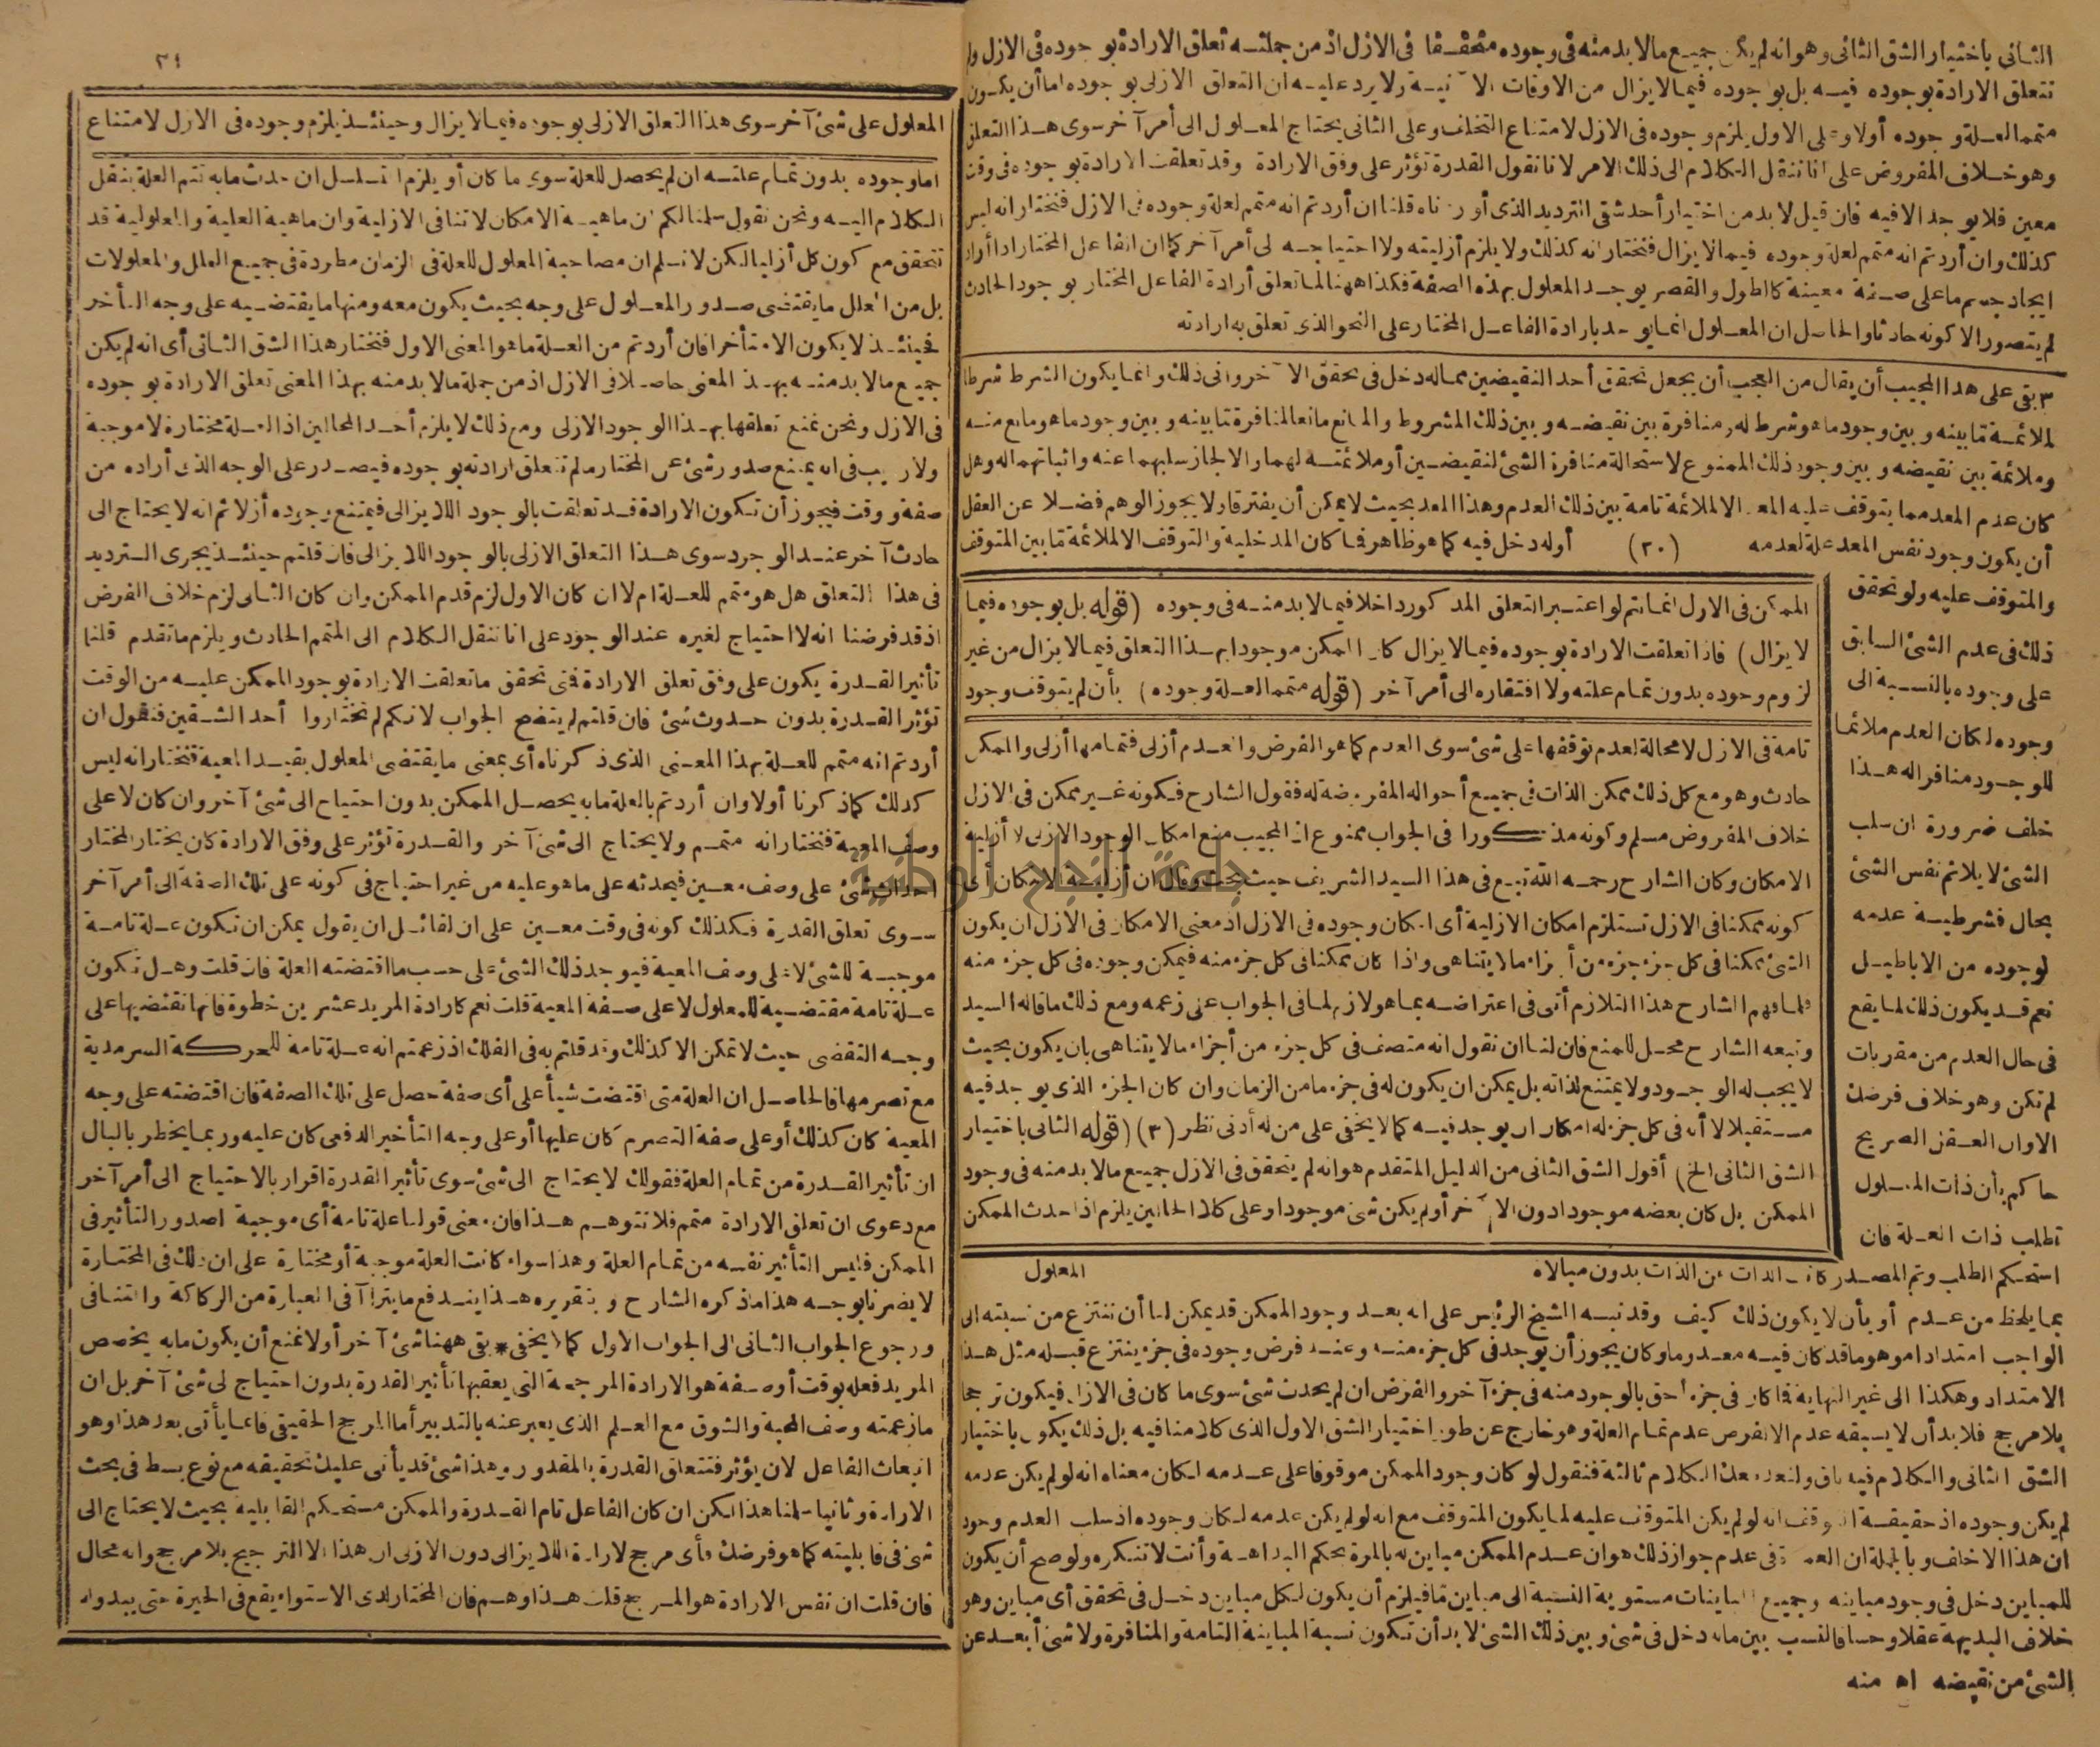 الثانى باختيار الشق الثانى وهو انه لم يكن جميع مالا بد منه فى وجوده متحققا فى الازل اذ من جملته تعلق الارادة بوجوده فى الازل ولم
تتعلق الارادة بوجوده فيه بل بوجوده فيما لا يزال من الاوقات الآتية ولا يرد عليه ان التعلق الازلى بوجوده اما أن يكون
متمما لعلة وجوده أولا وعلى الاول يلزم وجوده فى الازل لامتناع التخلف وعلى الثانى يحتاج المعلول الى أمر آخر سوى هذا التعلق
وهو خلاف المفروض على انا ننقل الكلام الى ذلك الامر لانا نقول القدرة تؤثر على وفق الارادة وقد تعلقت الارادة بوجوده فى وقت
معين فلا يوجد الا فيه فان قيل لا بد من اختيار أحد شقى الترديد الذى أوردناه قلنا ان أردتم انه متمم لعلة وجوده فى الازل فنختار انه ليس
كذلك وان أردتم انه متمم لعلة وجوده فيما لا يزال فنختار انه كذلك ولا يلزم أزليته ولا احتياجه الى أمر آخر كما ان الفاعل المختار اذا أراد
ايجاد جسم ما على صفة معينة كالطول والقصر يوجد المعلول بهذه الصفة فكذا ههنا لما تعلق أرادة الفاعل المختار بوجود الحادث
لم يتصور الا كونه حادثا والحاصل ان المعلول انما يوجد بارادة الفاعل المختار على النحو الذى تعلق به ارادته
٣ بقى على هذا المجيب أن يقال من العجيب أن يجعل تحقق أحد النقيضين مما له دخل فى تحقق الآخر وانى ذلك وانما يكون الشرط شرطا
لملائمة ما بينه وبين وجود ما هو شرط له ومنافرة بين نقيضه وبين ذلك المشروط والمانع مانعا لمنافرة ما بينه وبين وجود ما هو مانع منه
وملائمة بين نقيضه وبين وجود ذلك الممنوع لاستحالة منافرة الشئ لنقيضين أو ملائمته لهما والا لجاز سلبهما عنه واثباتهما له وهل
كان عدم المعد مما يتوقف عليه المعد الا لملائمة تامة بين ذلك العدم وهذا المعد بحيث لا يمكن أن يفترقا ولا يجوز الوهم فضلا عن العقل
أن يكون وجود نفس المعد علة لعدمه (٣٠) أوله دخل فيه كما هو ظاهر فما كان المدخلية والتوقف الا لملائمة ما بين المتوقف
والمتوقف عليه ولو تحقق
ذلك فى عدم الشئ السابق
على وجوده بالنسبة الى
وجوده لكان العدم ملائما
للوجود منافرا له هذا
خلف ضرورة ان سلب
الشئ لا يلائم نفس الشئ
بحال فشرطية عدمه
لوجوده من الاباطيل
نعم قد يكون ذلك لما يقع
فى حال العدم من مقربات
لم تكن وهو خلاف فرضك
الاوان العقل الصريح
حاكم بأن ذات المعلول
تطلب ذات العلة فان
استحكم الطلب وتم المصدر كانت الذات عن الذات بدون مبالاة
الممكن فى الازل انما تتم لو اعتبر التعلق المذكور داخلا فيما لا بد منه فى وجوده (قوله بل بوجوده فيما
لا يزال) فاذا تعلقت الارادة بوجوده فيما لا يزال كان الممكن موجودا بهذا التعلق فيما لا يزال من غير
لزوم وجوده بدون تمام علته ولا افتقاره الى أمر آخر (قوله متمما لعلة وجوده) بأن لم يتوقف وجود
تامة فى الازل لا محالة لعدم توقفها على شئ سوى العدم كما هو الفرض والعدم أزلى فتمامها أزلى والممكن
حادث وهو مع كل ذلك ممكن الذات فى جميع أحواله المفروضة له فقول الشارح فكونه غير ممكن فى الازل
خلاف المفروض مسلم وكونه مذكورا فى الجواب ممنوع اذ المجيب منع امكان الوجود الازلى لا أزلية
الامكان وكان الشارح رحمه الله تبع فى هذا السيد الشريف حيث بحث وقال ان أزلية الامكان أى
كونه ممكنا فى الازل تستلزم امكان الازلية أى امكان وجوده فى الازل اذ معنى الامكان فى الازل ان يكون
الشئ ممكنا فى كل جزء جزء من أجزاء ما لا يتناهى واذا كان ممكنا فى كل جزء منه فيمكن وجوده فى كل جزء منه
فلما فهم الشارح هذا التلازم أتى فى اعتراضه بما هو لازم لما فى الجواب على زعمه ومع ذلك ما قاله السيد
وتبعه الشارح محل للمنع فان لنا ان نقول انه متصف فى كل جزء من أجزاء ما لا يتناهى بان يكون بحيث
لا يجب له الوجود ولا يمتنع لذاته بل يمكن ان يكون له فى جزء ما من الزمان وان كان الجزء الذى يوجد فيه
مستقبلا لا أنه فى كل جزء له امكان ان يوجد فيه كما لا يخفى على من له أدنى نظر (٣) (قوله الثانى باختيار
الشق الثانى الخ) أقول الشق الثانى من الدليل المتقدم هو انه لم يتحقق فى الازل جميع مالا بد منه فى وجود
الممكن بل كان بعضه موجودا دون الآخر أو لم يكن شئ موجودا وعلى كلا الحالين يلزم اذا حدث الممكن
المعلول
بما يلحظ من عدم أو بأن لا يكون ذلك كيف وقد نبه الشيخ الرئيس على انه بعد وجود الممكن قد يمكن لنا أن ننتزع من نسبته الى
الواجب امتدادا موهوما قد كان فيه معدوما وكان يجوز أن يوجد فى كل جزء منه وعند فرض وجوده فى جزء ينتزع قبله مثل هذا
الامتداد وهكذا الى غير النهاية فما كان فى جزء أحق بالوجود منه فى جزء آخر والفرض ان لم يحدث شئ سوى ما كان فى الازل فيكون ترجحا
بلا مرجح فلا بد أن لا يسبقه عدم الا نفرض عدم تمام العلة وهو خارج عن طور اختيار الشق الاول الذى كلامنا فيه بل ذلك يكون باختيار
الشق الثانى والكلام فيه باق ولنعد معك الكلام ثالثة فنقول لو كان وجود الممكن موقوفا على عدمه لكان معناه انه لو لم يكن عدمه
لم يكن وجوده اذ حقيقة التوقف انه لو لم يكن المتوقف عليه لما يكون المتوقف مع انه لو لم يكن عدمه لكان وجوده اذ سلب العدم وجود
ان هذا الا خلف وبالجملة ان العمدة فى عدم جواز ذلك هو ان عدم الممكن مباين له بالمرة بحكم البداهة وأنت لا تنكره ولو صح أن يكون
للمباين دخل فى وجود مباينه وجميع المباينات مستوية النسبة الى مباين ما فيلزم أن يكون لكل مباين دخل فى تحقق أى مباين وهو
خلاف البديهة عقلا وحسا فالنسب بين ما له دخل فى شئ وبين ذلك الشئ لا بد أن تكون نسبة المباينة التامة والمنافرة ولا شئ أبعد عن
الشئ من نقيضه اه منه
٣١
المعلول على شئ آخر سوى هذا التعلق الازلى بوجوده فيما لا يزال وحينئذ يلزم وجوده فى الازل لامتناع
اما وجوده بدون تمام علته ان لم يحصل للعلة سوى ما كان أو يلزم التسلسل ان حدث ما به تتم العلة بنقل
الكلام اليه ونحن نقول سلمنا لكم ان ماهية الامكان لا تنافى الازلية وان ماهية العلية والمعلولية قد
تتحقق مع كون كل أزليا لكن لا نسلم ان مصاحبة المعلول للعلة فى الزمان مطردة فى جميع العلل والمعلولات
بل من العلل ما يقتضى صدور المعلول على وجه بحيث يكون معه ومنها ما يقتضيه على وجه التأخر
فحينئذ لا يكون الا متأخرا فان أردتم من العلة ما هو المعنى الاول فنختار هذا الشق الثانى أى انه لم يكن
جميع مالا بد منه بهذا المعنى حاصلا فى الازل اذ من جملة مالا بد منه بهذا المعنى تعلق الارادة بوجوده
فى الازل ونحن نمنع تعلقها بهذا الوجود الازلى ومع ذلك لا يلزم أحد المحالين اذ العلة مختارة لا موجبة
ولا ريب فى انه يمتنع صدور شئ عن المختار ما لم تتعلق ارادته بوجوده فيصدر على الوجه الذى أراده من
صفة ووقت فيجوز أن تكون الارادة قد تعلقت بالوجود اللايزالى فيمتنع وجوده أزلا ثم انه لا يحتاج الى
حادث آخر عند الوجود سوى هذا التعلق الازلى بالوجود اللايزالى فان قلتم حينئذ يجرى الترديد
فى هذا التعلق هل هو متمم للعلة ام لا ان كان الاول لزم قدم الممكن وان كان الثانى لزم خلاف الفرض
اذ قد فرضنا انه لا احتياج لغيره عند الوجود على انا ننقل الكلام الى المتمم الحادث ويلزم ما تقدم قلنا
تأثير القدرة يكون على وفق تعلق الارادة فتى تحقق ما تعلقت الارادة بوجود الممكن عليه من الوقت
تؤثر القدرة بدون حدوث شئ فان قلتم لم يتضح الجواب لانكم لم تختاروا أحد الشقين فنقول ان
أردتم انه متمم للعلة بهذا المعنى الذى ذكرناه أى بمعنى ما يقتضى المعلول بقيد المعية فنختار انه ليس
كذلك كما ذكرنا أولا وان أردتم بالعلة ما به يحصل الممكن بدون احتياج الى شئ آخر وان كان لا على
وصف المعية فنختار انه متمم ولا يحتاج الى شئ آخر والقدرة تؤثر على وفق الارادة كان يختار المختار
احداث شئ على وصف معين فيحدثه على ما هو عليه من غير احتياج فى كونه على تلك الصفة الى أمر آخر
سوى تعلق القدرة فكذلك كونه فى وقت معين على ان لقائل ان يقول يمكن ان تكون علة تامة
موجبة للشئ لا على وصف المعية فيوجد ذلك الشئ على حسب ما اقتضته العلة فان قلت وهل تكون
علة تامة مقتضية للمعلول لا على صفة المعية قلت نعم كارادة المريد عشرين خطوة فانها تقتضيها على
وجه التقضى حيث لا تمكن الا كذلك وقد قلتم به فى الفلك اذ زعمتم انه علة تامة للحركة السرمدية
مع تصرمها فالحاصل ان العلة متى اقتضت شيأ على أى صفة حصل على تلك الصفة فان اقتضته على وجه
المعية كان كذلك أو على صفة التصرم كان عليها أو على وجه التأخير الدفعى كان عليه وربما يخطر بالبال
ان تأثير القدرة من تمام العلة فقولك لا يحتاج الى شئ سوى تأثير القدرة اقرار بالاحتياج الى أمر آخر
مع دعوى ان تعلق الارادة متمم فلا تتوهم هذا فان معنى قولنا علة تامة أى موجبة لصدور التأثير فى
الممكن فليس التأثير نفسه من تمام العلة وهذا سواء كانت العلة موجبة أو مختارة على ان ذلك فى المختارة
لا يضرنا بوجه هذا ما ذكره الشارح وبتقريره هذا يندفع ما يتراآى فى العبارة من الركاكة والتنافى
ورجوع الجواب الثانى الى الجواب الاول كما لا يخفى * بقى ههنا شئ آخر أولا نمنع أن يكون ما به يخصص
المريد فعله بوقت أو صفة هو الارادة المرجحة التى يعقبها تأثير القدرة بدون احتياج لى شئ آخر بل ان
ما زعمته وصف المحبة والشوق مع العلم الذى يعبر عنه بالتدبير أما المرجح الحقيقى فانما يأتى بعد هذا وهو
انبعاث الفاعل لان يؤثر فتتعلق القدرة بالمقدور وهذا شئ قد يأتى عليك تحقيقه مع نوع بسط فى بحث
الارادة وثانيا سلمنا هذا لكن ان كان الفاعل تام القدرة والممكن مستحكم القابلية بحيث لا يحتاج الى
شئ فى قابليته كما هو فرضك فأى مرجح لارادة اللايزالى دون الازلى ان هذا الا الترجيح بلا مرجح وانه محال
فان قلت ان نفس الارادة هو المرجح قلت هذا وهم فان المختار لدى الاستواء يقع فى الحيرة حتى يبدوله
جامعة النجاح الوطنية